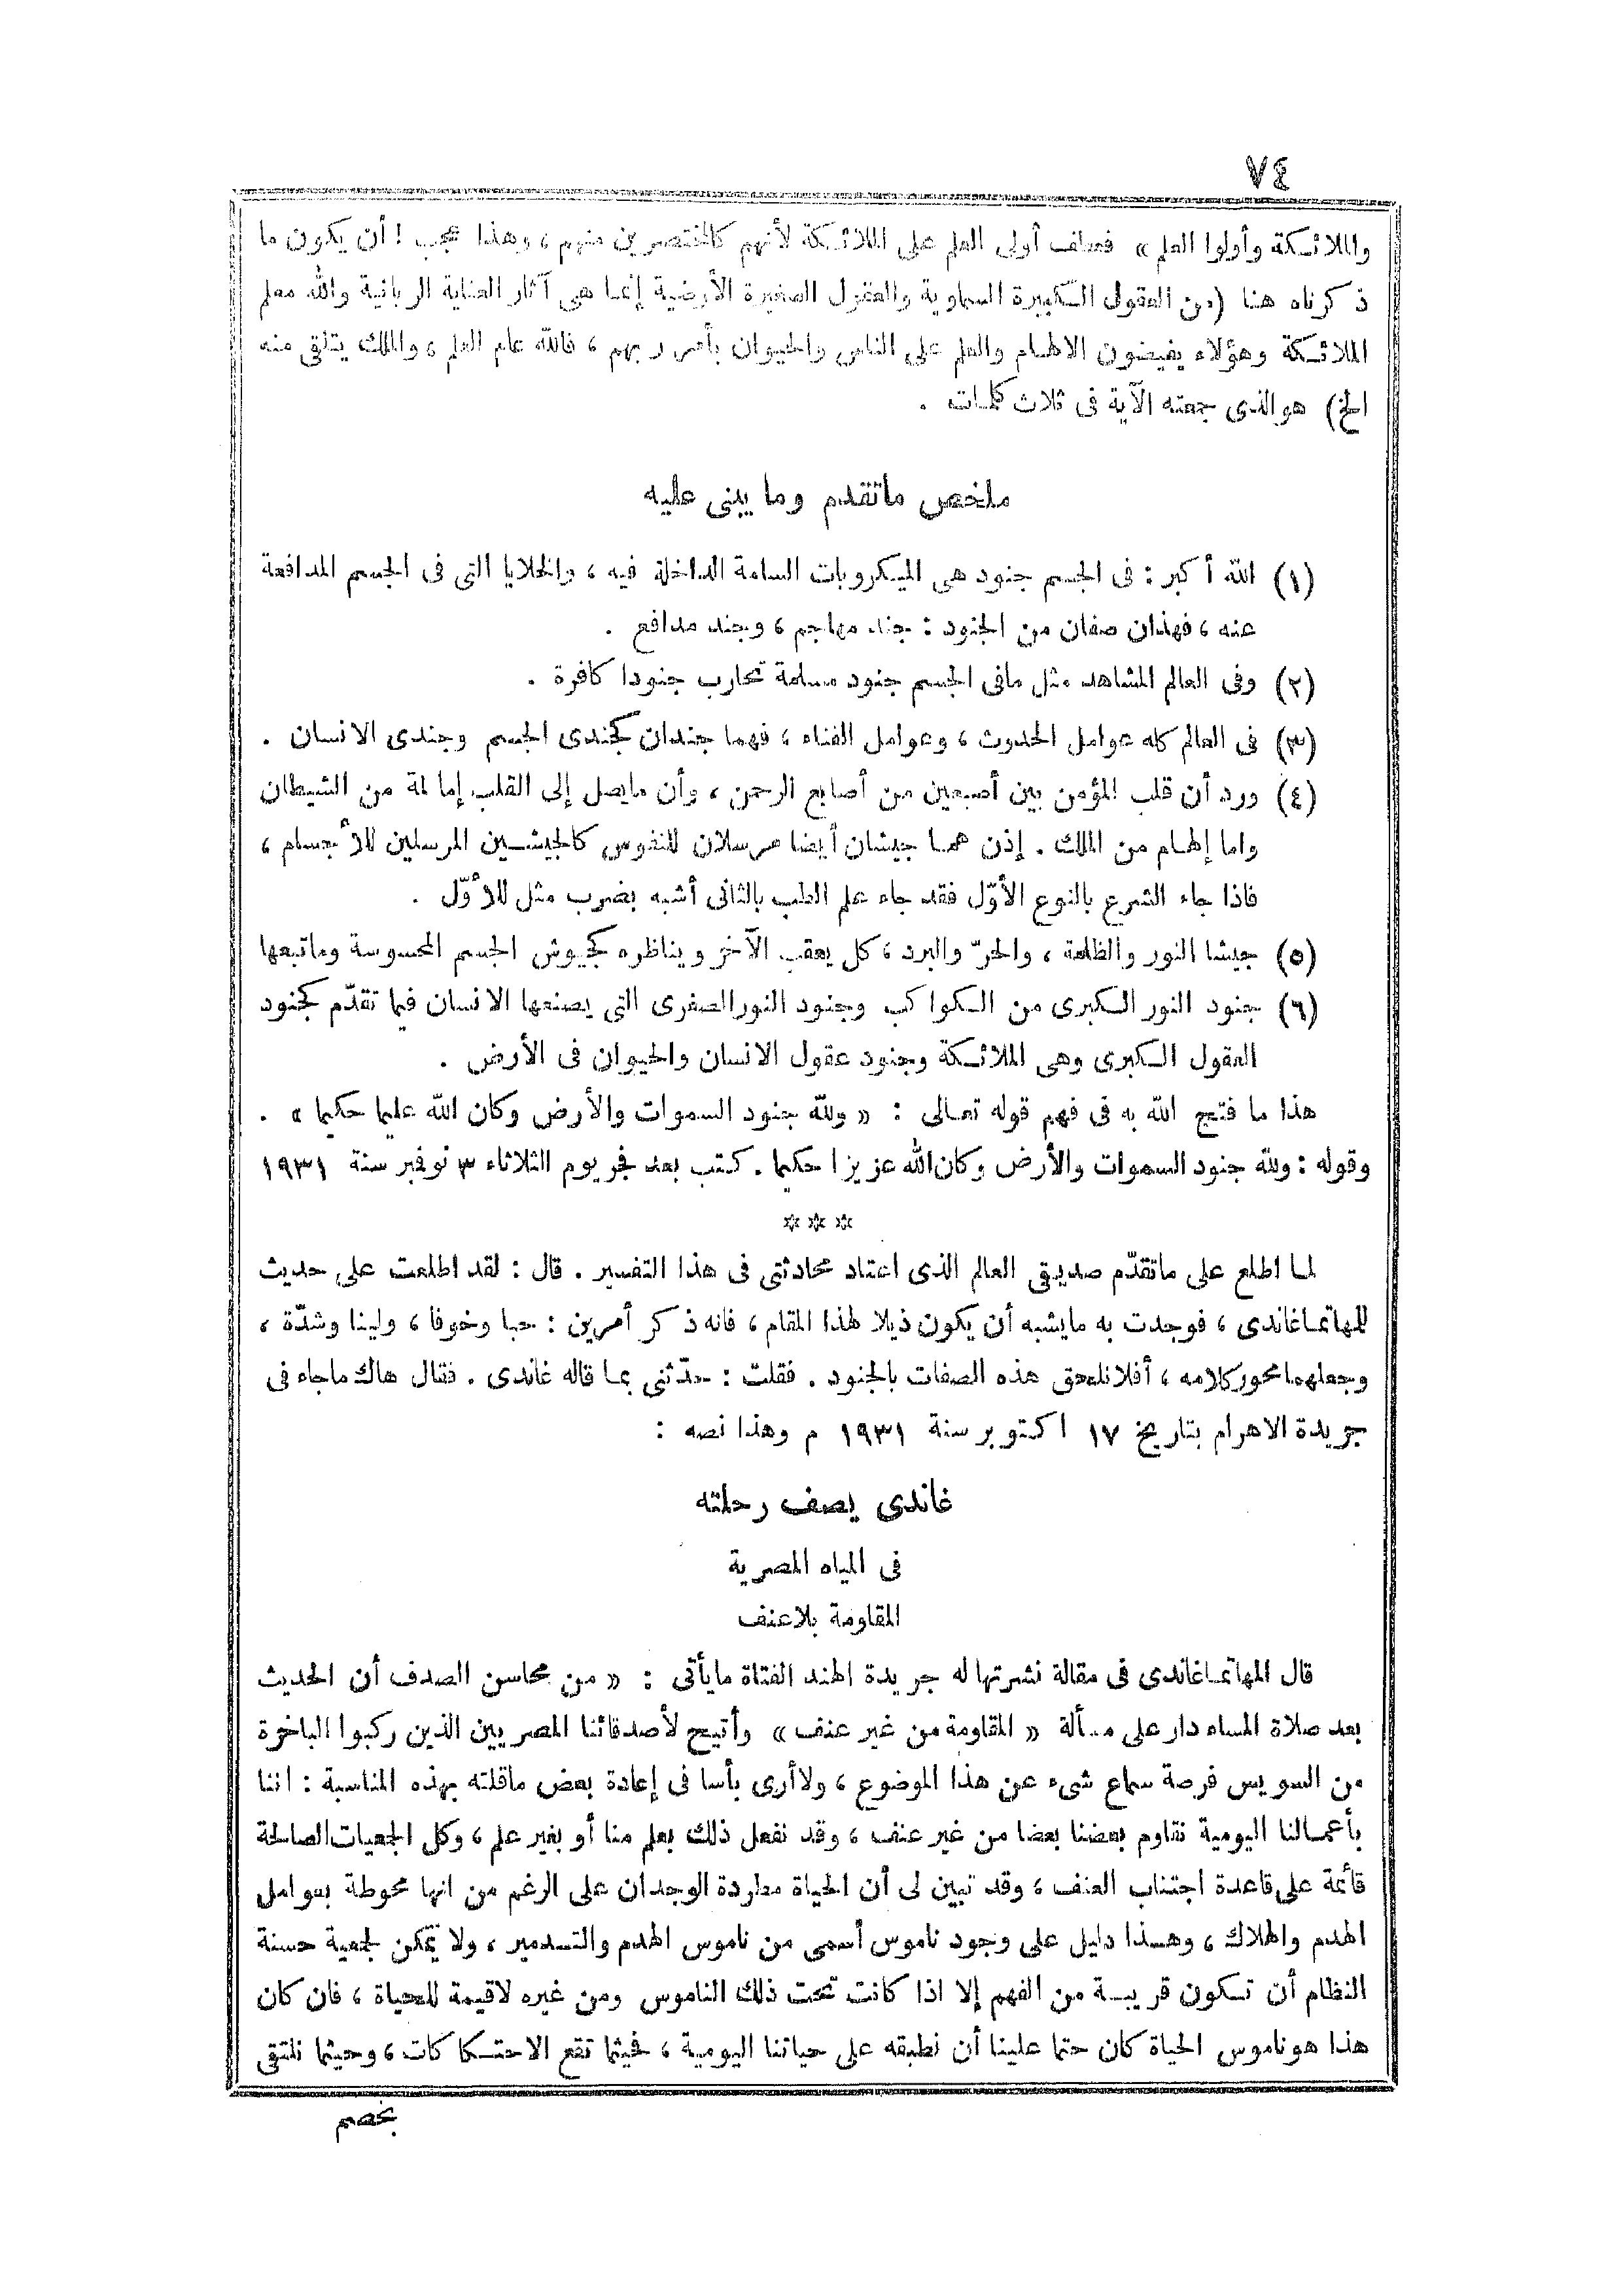 ٧٤
والملائكة وأولوا العلم » فعطف أولى العلم على الملائكة لأنهم كالمختصرين منهم ، وهذا عجب ! أن يكون ما
ذكرناه هنا (من العقول الكبيرة السماوية والعقول الصغيرة الأرضية إنما هى آثار العناية الربانية والله معلم
الملائكة وهؤلاء يفيضون الالهام والعلم على الناس والحيوان بأمر ربهم ، فالله عام العلم ، والملك يتلقى منه
الخ) هو الذى جمعته الآية فى ثلاث كلمات .
ملخص ماتقدم وما يبنى عليه
(١) الله أكبر : فى الجسم جنود هى الميكروبات السامة الداخلة فيه ، والخلايا التى فى الجسم المدافعة
عنه ، فهذان صفان من الجنود : جند مهاجم ، وجند مدافع .
(٢) وفى العالم المشاهد مثل مافى الجسم جنود مسلمة تحارب جنودا كافرة .
(٣) فى العالم كله عوامل الحدوث ، وعوامل الفناء ، فهما جندان كجندى الجسم وجندى الانسان .
(٤) ورد أن قلب المؤمن بين أصبعين من أصابع الرحمن ، وأن مايصل إلى القلب إما لمة من الشيطان
واما إلهام من الملك . إذن هما جيشان أيضا مرسلان للنفوس كالجيشين المرسلين للأجسام ،
فاذا جاء الشرع بالنوع الأوّل فقد جاء علم الطب بالثانى أشبه بضرب مثل للأوّل .
(٥) جيشا النور والظلمة ، والحرّ والبرد ، كل يعقب الآخر ويناظره كجيوش الجسم المحسوسة وماتبعها
(٦) جنود النور الكبرى من الكواكب وجنود النور الصغرى التى يصنعها الانسان فيما تقدّم كجنود
العقول الكبرى وهى الملائكة وجنود عقول الانسان والحيوان فى الأرض .
هذا ما فتح الله به فى فهم قوله تعالى : « ولله جنود السموات والأرض وكان الله عليما حكيما » .
وقوله : ولله جنود السموات والأرض وكان الله عزيزا حكيما . كتب بعد فجر يوم الثلاثاء ٣ نوفمبر سنة ١٩٣١
* * *
لما اطلع على ماتقدّم صديقى العالم الذى اعتاد محادثتى فى هذا التفسير . قال : لقد اطلعت على حديث
للمهاتما غاندى ، فوجدت به مايشبه أن يكون ذيلا لهذا المقام ، فانه ذكر أمرين : حبا وخوفا ، ولينا وشدّة ،
وجعلهما محور كلامه ، أفلا نلحق هذه الصفات بالجنود . فقلت : حدّثنى بما قاله غاندى . فقال هاك ماجاء فى
جريدة الاهرام بتاريخ ١٧ اكتوبر سنة ١٩٣١ م وهذا نصه :
غاندى يصف رحلته
فى المياه المصرية
المقاومة بلا عنف
قال المهاتما غاندى فى مقالة نشرتها له جريدة الهند الفتاة مايأتى : « من محاسن الصدف أن الحديث
بعد صلاة المساء دار على مسألة « المقاومة من غير عنف » وأتيح لأصدقائنا المصريين الذين ركبوا الباخرة
من السويس فرصة سماع شىء عن هذا الموضوع ، ولا أرى بأسا فى إعادة بعض ماقلته بهذه المناسبة : اننا
بأعمالنا اليومية نقاوم بعضنا بعضا من غير عنف ، وقد نفعل ذلك بعلم منا أو بغير علم ، وكل الجمعيات الصالحة
قائمة على قاعدة اجتناب العنف ، وقد تبين لى أن الحياة مطاردة الوجدان على الرغم من انها محوطة بعوامل
الهدم والهلاك ، وهذا دليل على وجود ناموس أسمى من ناموس الهدم والتدمير ، ولا يمكن لجمعية حسنة
النظام أن تكون قريبة من الفهم إلا اذا كانت تحت ذلك الناموس ومن غيره لاقيمة للحياة ، فان كان
هذا هو ناموس الحياة كان حتما علينا أن نطبقه على حياتنا اليومية ، فحيثما تقع الاحتكاكات ، وحيثما نلتقى
بخصم